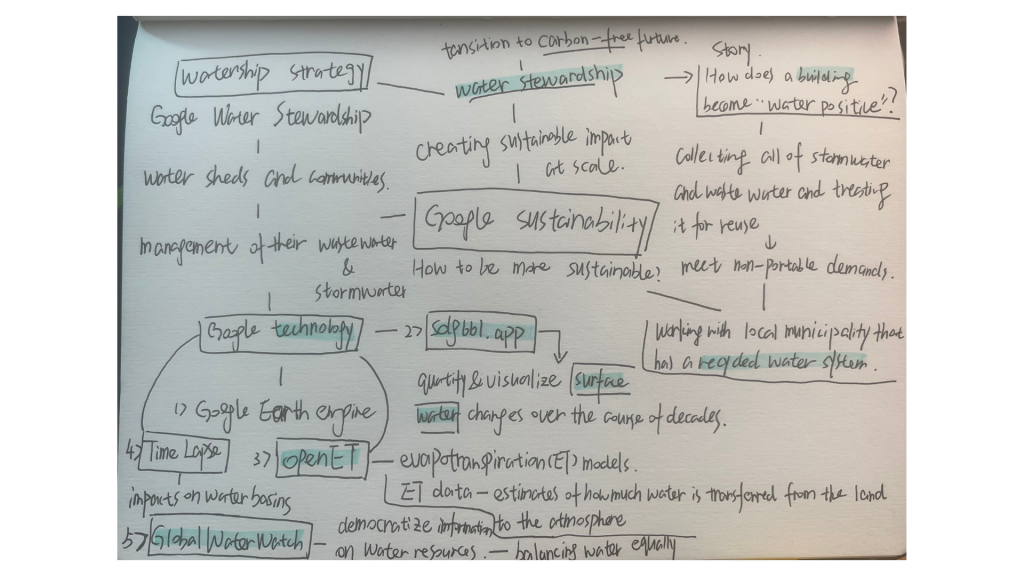 tansition to carbon-free future.
Watership strategy
water stewardship
Story.
How does a building
become "water positive"?
Google Water Stewardship
creating sustainable impact
at scale.
water sheds and communities.
collecting all of stormwater
and waste water and treating
it for reuse
Google sustainability
management of their wastewater
&
stormwater
How to be more sustainable?
meet non-portable demands.
Google technology
2> sdg661.app
working with local municipality that
has a recycled water system.
quantify & visualize surface
water changes over the course of decades.
1> Google Earth engine
4> Time Lapse
3> openET
evapotranspiration(ET) models.
impacts on water basins
ET data - estimates of how much water is transferred from the land
to the atmosphere
5> Global Water Watch
democratize information
on water resources. — balancing water equally